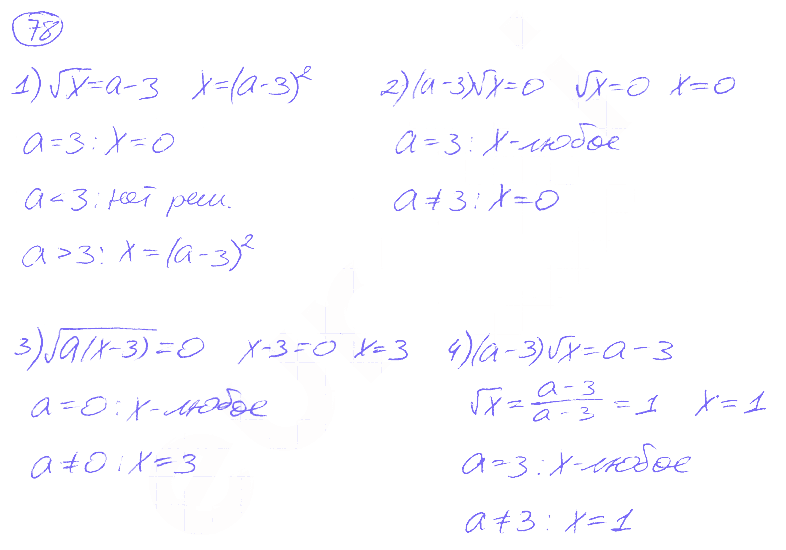 78
1) √x = a - 3 x = (a - 3)²
a = 3 : x = 0
a < 3 : нет реш.
a > 3 : x = (a - 3)²
2) (a - 3)√x = 0 √x = 0 x = 0
a = 3 : x - любое
a ≠ 3 : x = 0
3) √(a(x - 3)) = 0 x - 3 = 0 x = 3
a = 0 : x - любое
a ≠ 0 : x = 3
4) (a - 3)√x = a - 3
√x = (a - 3)/(a - 3) = 1 x = 1
a = 3 : x - любое
a ≠ 3 : x = 1